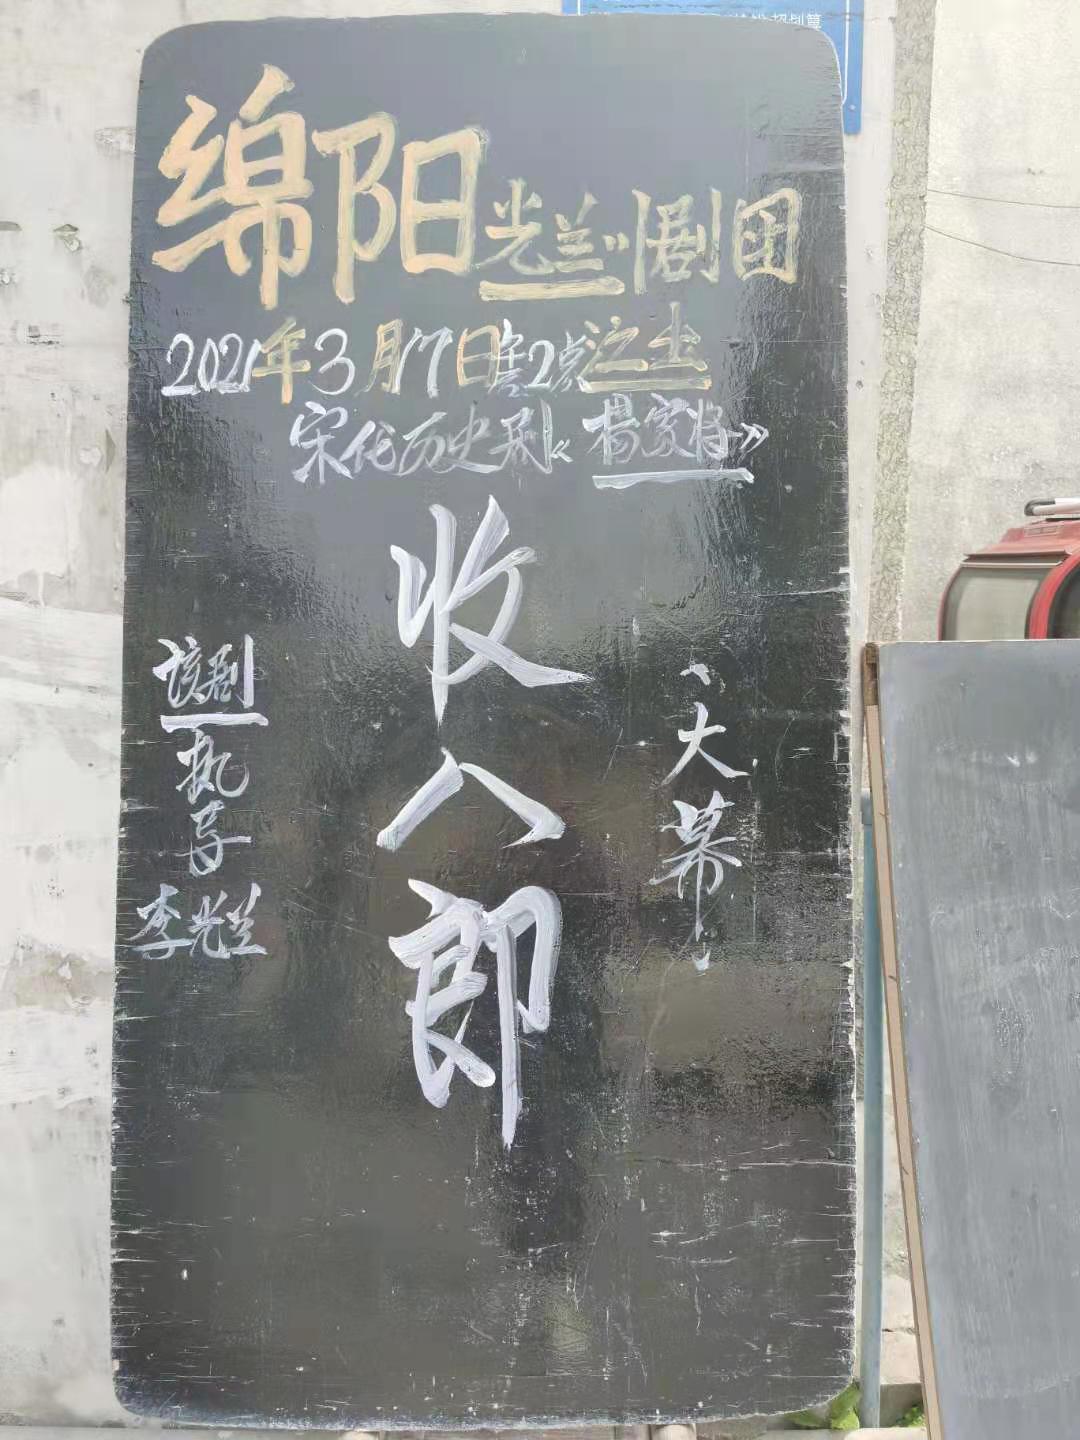 绵阳光兰川剧团
2021年3月17日午2点
宋代历史剧《杨家将》
收八郎
(大幕)
该剧
执导
李光兰